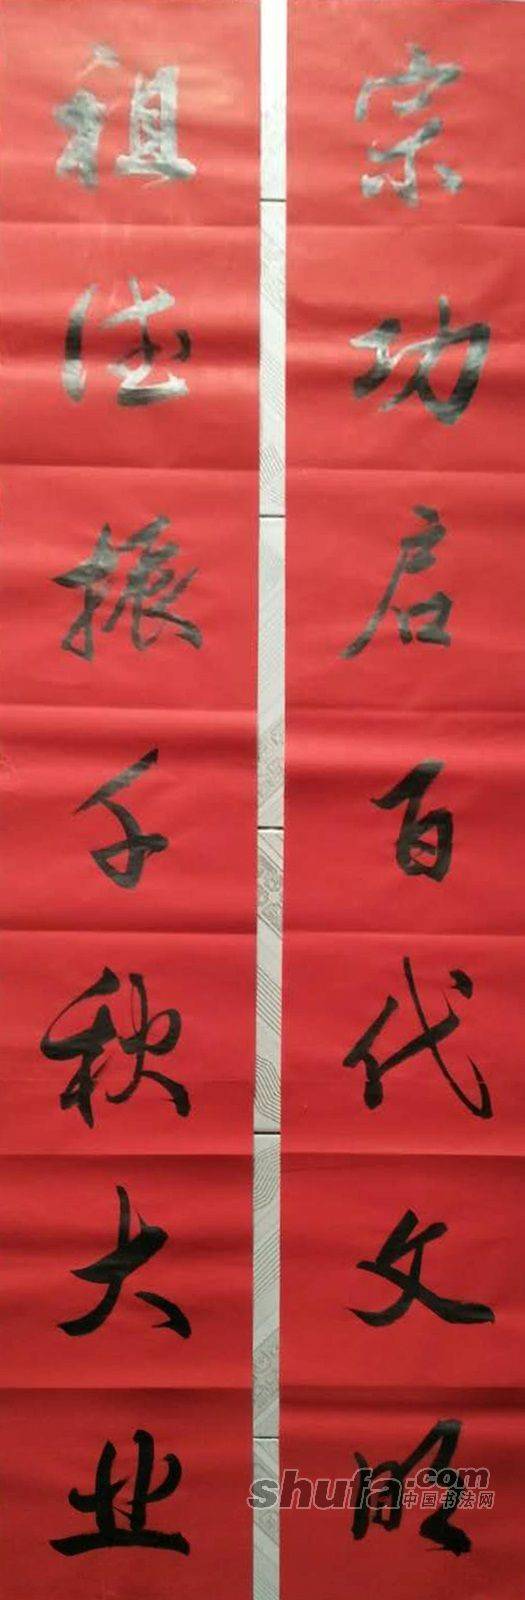 宗功启百代文明
祖德振千秋大业
shufa.com
中国书法网